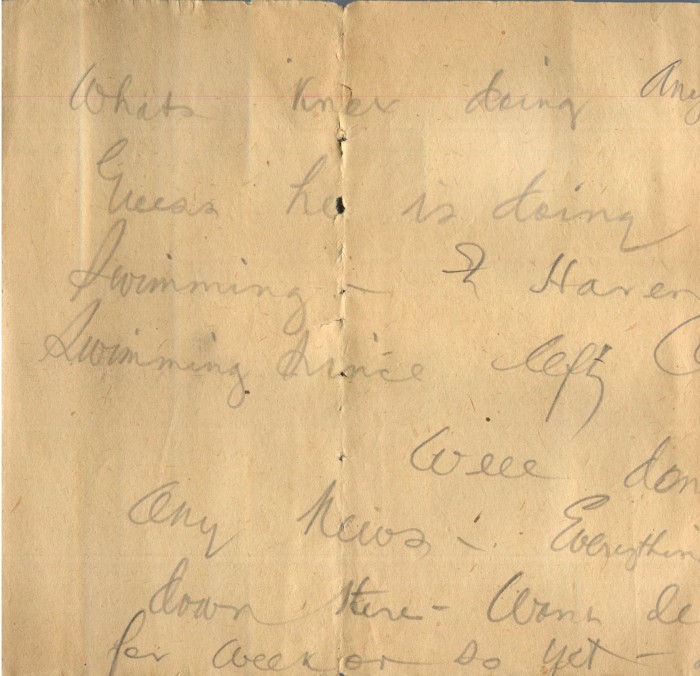 Whats Knox doing Any
Guess he is doing
Swimming - I Haven
Swimming since left
Well don
Any News - Everythin
down there - Wont le
for week or so yet -